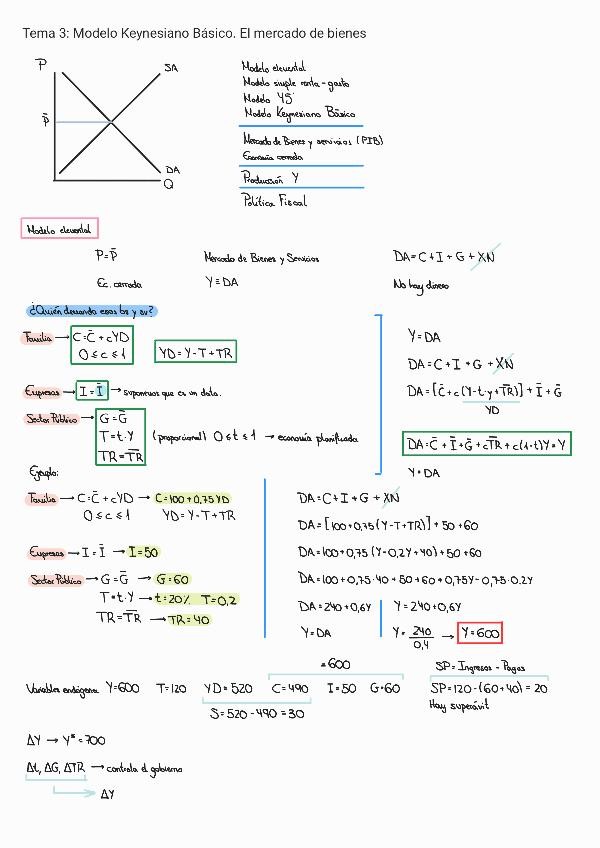 Tema 3: Modelo Keynesiano Básico. El mercado de bienes
P
SA
P̄
DA
Q
Modelo elemental
Modelo simple renta-gasto
Modelo 45°
Modelo Keynesiano Básico
Mercado de Bienes y servicios (PIB)
Economía cerrada
Producción Y
Política Fiscal
Modelo elemental
P=P̄ Mercado de Bienes y Servicios DA=C+I+G+XN
Ec. cerrada Y=DA No hay dinero
¿Quién demanda esos bs y sv?
Familia → C=C̄+cYD
0≤c≤1 YD=Y-T+TR
Empresas → I=Ī → suponemos que es un dato.
Sector Público → G=Ḡ
T=t·Y (proporcional) 0≤t≤1 → economía planificada
TR=T̄R̄
Y=DA
DA=C+I+G+XN
DA=[C̄+c(Y-t·y+T̄R̄)]+Ī+Ḡ
YD
DA=C̄+Ī+Ḡ+cT̄R̄+c(1-t)Y=Y
Y=DA
Ejemplo:
Familia → C=C̄+cYD → C=100+0,75YD
0≤c≤1 YD=Y-T+TR
Empresas → I=Ī → I=50
Sector Público → G=Ḡ → G=60
T=t·Y → t=20% T=0,2
TR=T̄R̄ → TR=40
DA=C+I+G+XN
DA=[100+0,75(Y-T+TR)]+50+60
DA=100+0,75(Y-0,2Y+40)+50+60
DA=100+0,75·40+50+60+0,75Y-0,75·0.2Y
DA=240+0,6Y Y=240+0,6Y
Y=DA Y=240/0,4 → Y=600
=600 SP=Ingresos-Pagos
Variables endógenas Y=600 T=120 YD=520 C=490 I=50 G=60 SP=120-(60+40)=20
S=520-490=30 Hay superávit
ΔY → Y*=700
Δt, ΔG, ΔTR → controla el gobierno
→ ΔY